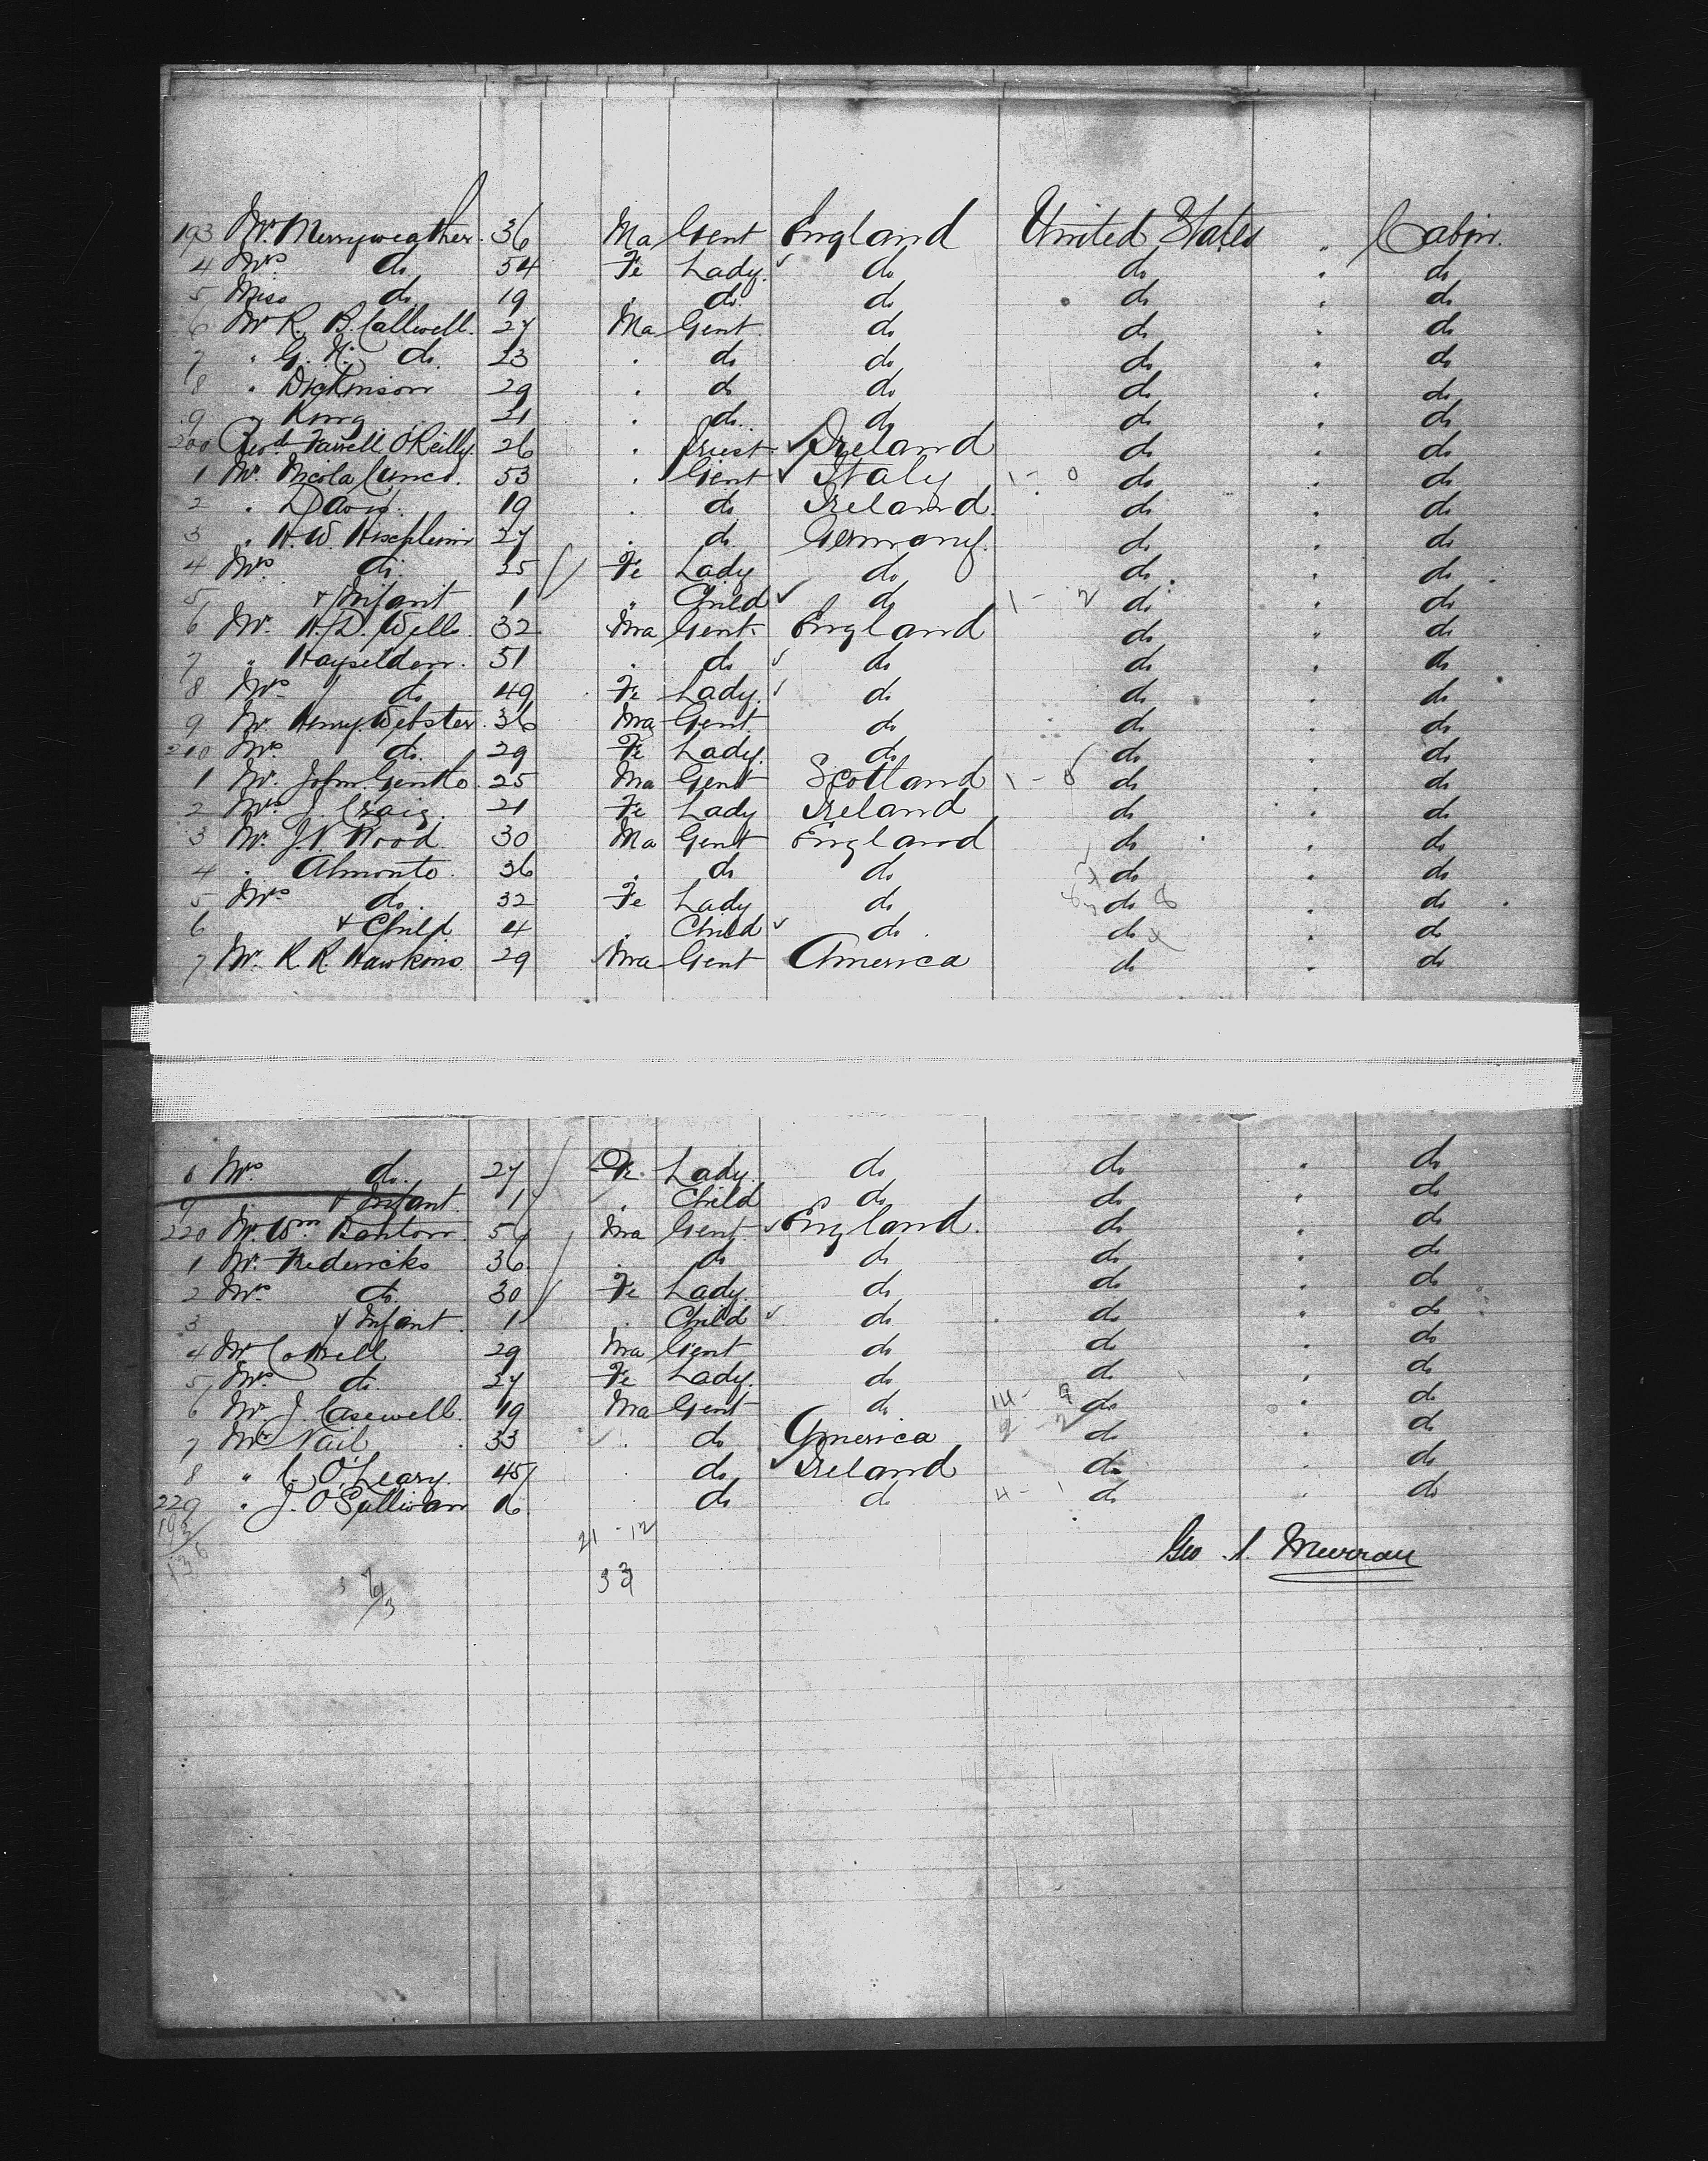 193 Mr. Merryweather. 36 Ma Gent England United States " Cabin.
4 Mrs do 54 Fe Lady. do do " do
5 Miss do 19 " do. do do " do
6 Mr R. B. Callwell. 27 Ma Gent. do do " do
7 " G. H. do. 23 " do do do " do
8 " Dickinson 29 " do do do " do
9 " King 21 " do. do do " do
200 Revd. Farrell O'Reilly. 26 " Priest Ireland do " do
1 Mr. Nicola Cuneo. 53 " Gent Italy 1 - 0 do " do
2 " Davis. 19 " do Ireland. do " do
3 " H. W. 27 " do Germany. do " do
4 Mrs do. 25 Fe Lady do do " do
5 & Infant 1 " Child do 1 - 2 do " do
6 Mr. H. D. Wells. 32 Ma Gent. England do " do
7 " Hayselden. 51 " do do do " do
8 Mrs do 49 Fe Lady. do do " do
9 Mr. Henry Webster. 36 Ma Gent do do " do
210 Mrs do. 29 Fe Lady. do do " do
1 Mr. John Gentle. 25 Ma Gent Scotland 1 - 0 do " do
2 Mrs J. Craig. 21 Fe Lady Ireland do " do
3 Mr. J. V. Wood 30 Ma Gent England do " do
4 " Almonto. 36 " do do do " do
5 Mrs do. 32 Fe Lady do do " do
6 & Child 4 " Child do. do " do
7 Mr. R. R. Hawkins. 29 Ma Gent America do " do
8 Mrs do. 27 Fe. Lady. do do " do
9 & Infant. 1 " Child do do " do
220 Mr. Wm. Banton. 56 Ma Gent. England. do " do
1 Mr. Fredericks 36 " do do do " do
2 Mrs do. 30 Fe Lady. do do " do
3 & Infant. 1 " Child do do " do
4 Mr Cottrell 29 Ma Gent do do " do
5 Mrs do. 27 Fe Lady. do do " do
6 Mr. J. Casewell. 19 Ma Gent do 14 - 9 do " do
7 Mr Nail 33 " do America 2 - 2 do " do
8 " C. O'Leary. 45 " do Ireland do " do
229 " J. O'Sullivan 16 " do do 4 - 1 do " do
193
21 - 12
Geo. S. Murray
33